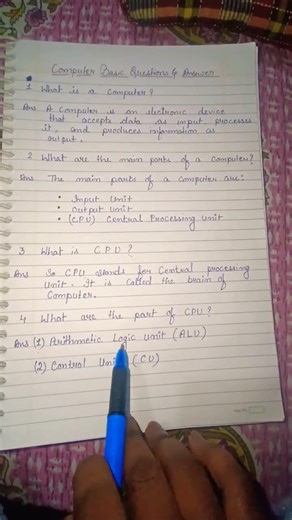 Computer Basic Questions & Answer
1 What is a Computer?
Ans A Computer is an electronic device
that accepts data as input, processes
it, and produces information as
output.
2 What are the main parts of a Computer?
Ans The main parts of a Computer are:
• Input Unit
• Output Unit
• (CPU) Central Processing Unit
3 What is CPU?
Ans So CPU stands for Central processing
Unit. It is called the brain of
Computer.
4 What are the part of CPU?
Ans (1) Arithmetic Logic Unit (ALU)
(2) Control Unit (CU)